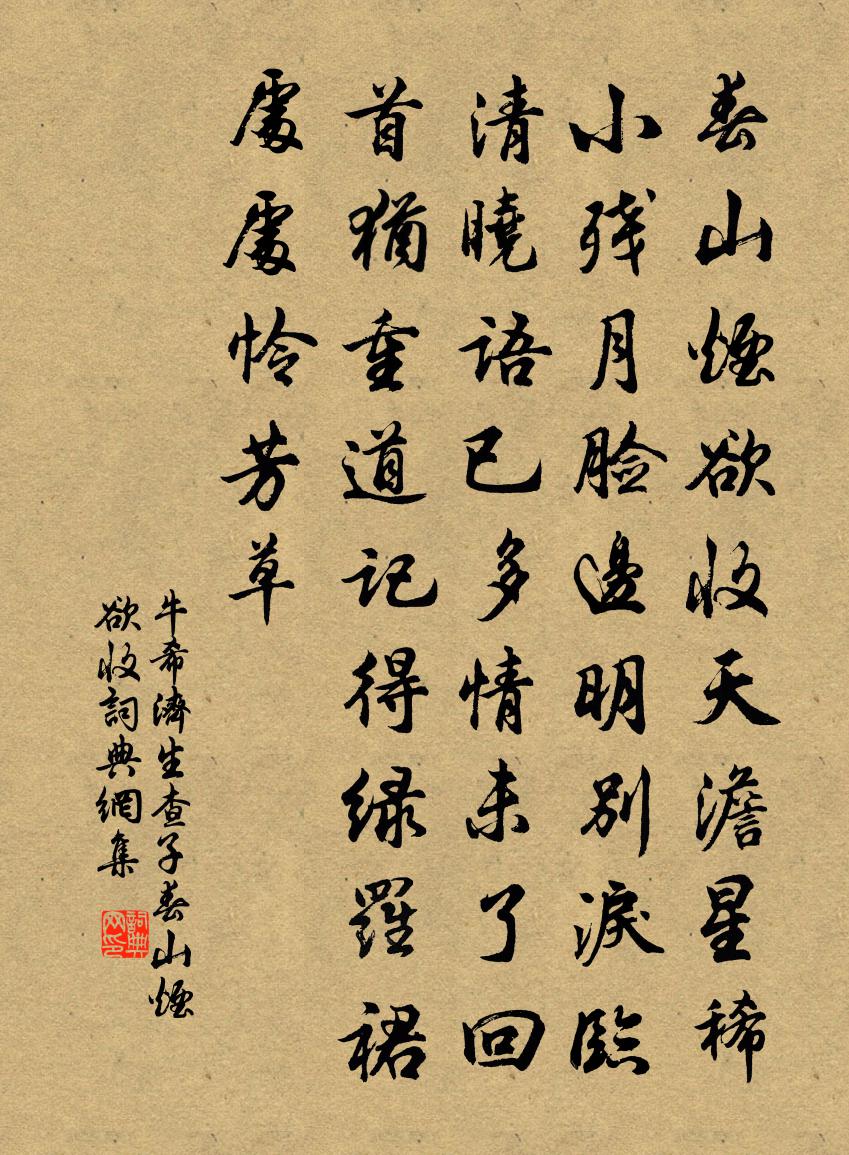 春山煙欲收天澹星稀
小残月脸邊明别淚臨
清曉語已多情未了回
首猶重道記得绿羅裙
處處怜芳草
牛希濟生查子春山煙
欲收詞典網集
詞典网印